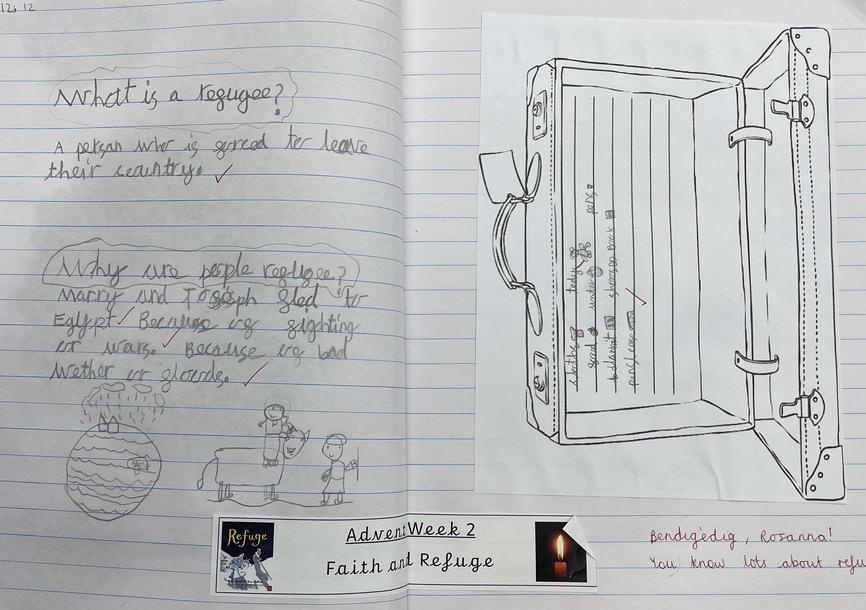 What is a refugee?
A person who is forced to leave
their country.
Why are people refugee?
Marry and Joseph fled to
Egypt Because of fighting
or wars. Because of bad
wether or floods.
clothes teddy
food water pens.
blanket book
pencil case
Refuge
Advent Week 2
Faith and Refuge
Bendigedig, Rosanna!
You know lots about refu